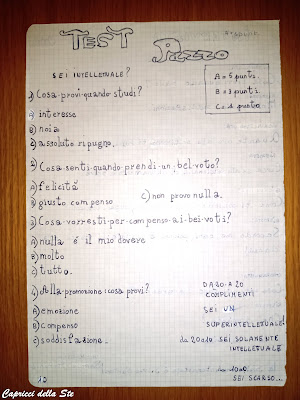 TEST PAZZO
SEI INTELLETUALE?
A = 5 punti.
B = 3 punti.
C = 1 punto
1) Cosa provi quando studi?
A) interesse
B) noia
C) assoluto ripugno.
2) Cosa senti quando prendi un bel voto?
A) felicità
B) giusto compenso
C) non provo nulla.
3) Cosa vorresti per compenso ai bei voti?
A) nulla è il mio dovere
B) molto
C) tutto.
4) Alla promozione cosa provi?
A) emozione
B) compenso
C) soddisfazione.
DA 30 A 20
COMPLIMENTI
SEI UN
SUPERINTELLETUALE!
da 20 a 10 SEI SOLAMENTE
INTELLETUALE
SEI SCARSO...
12
Capricci della Ste